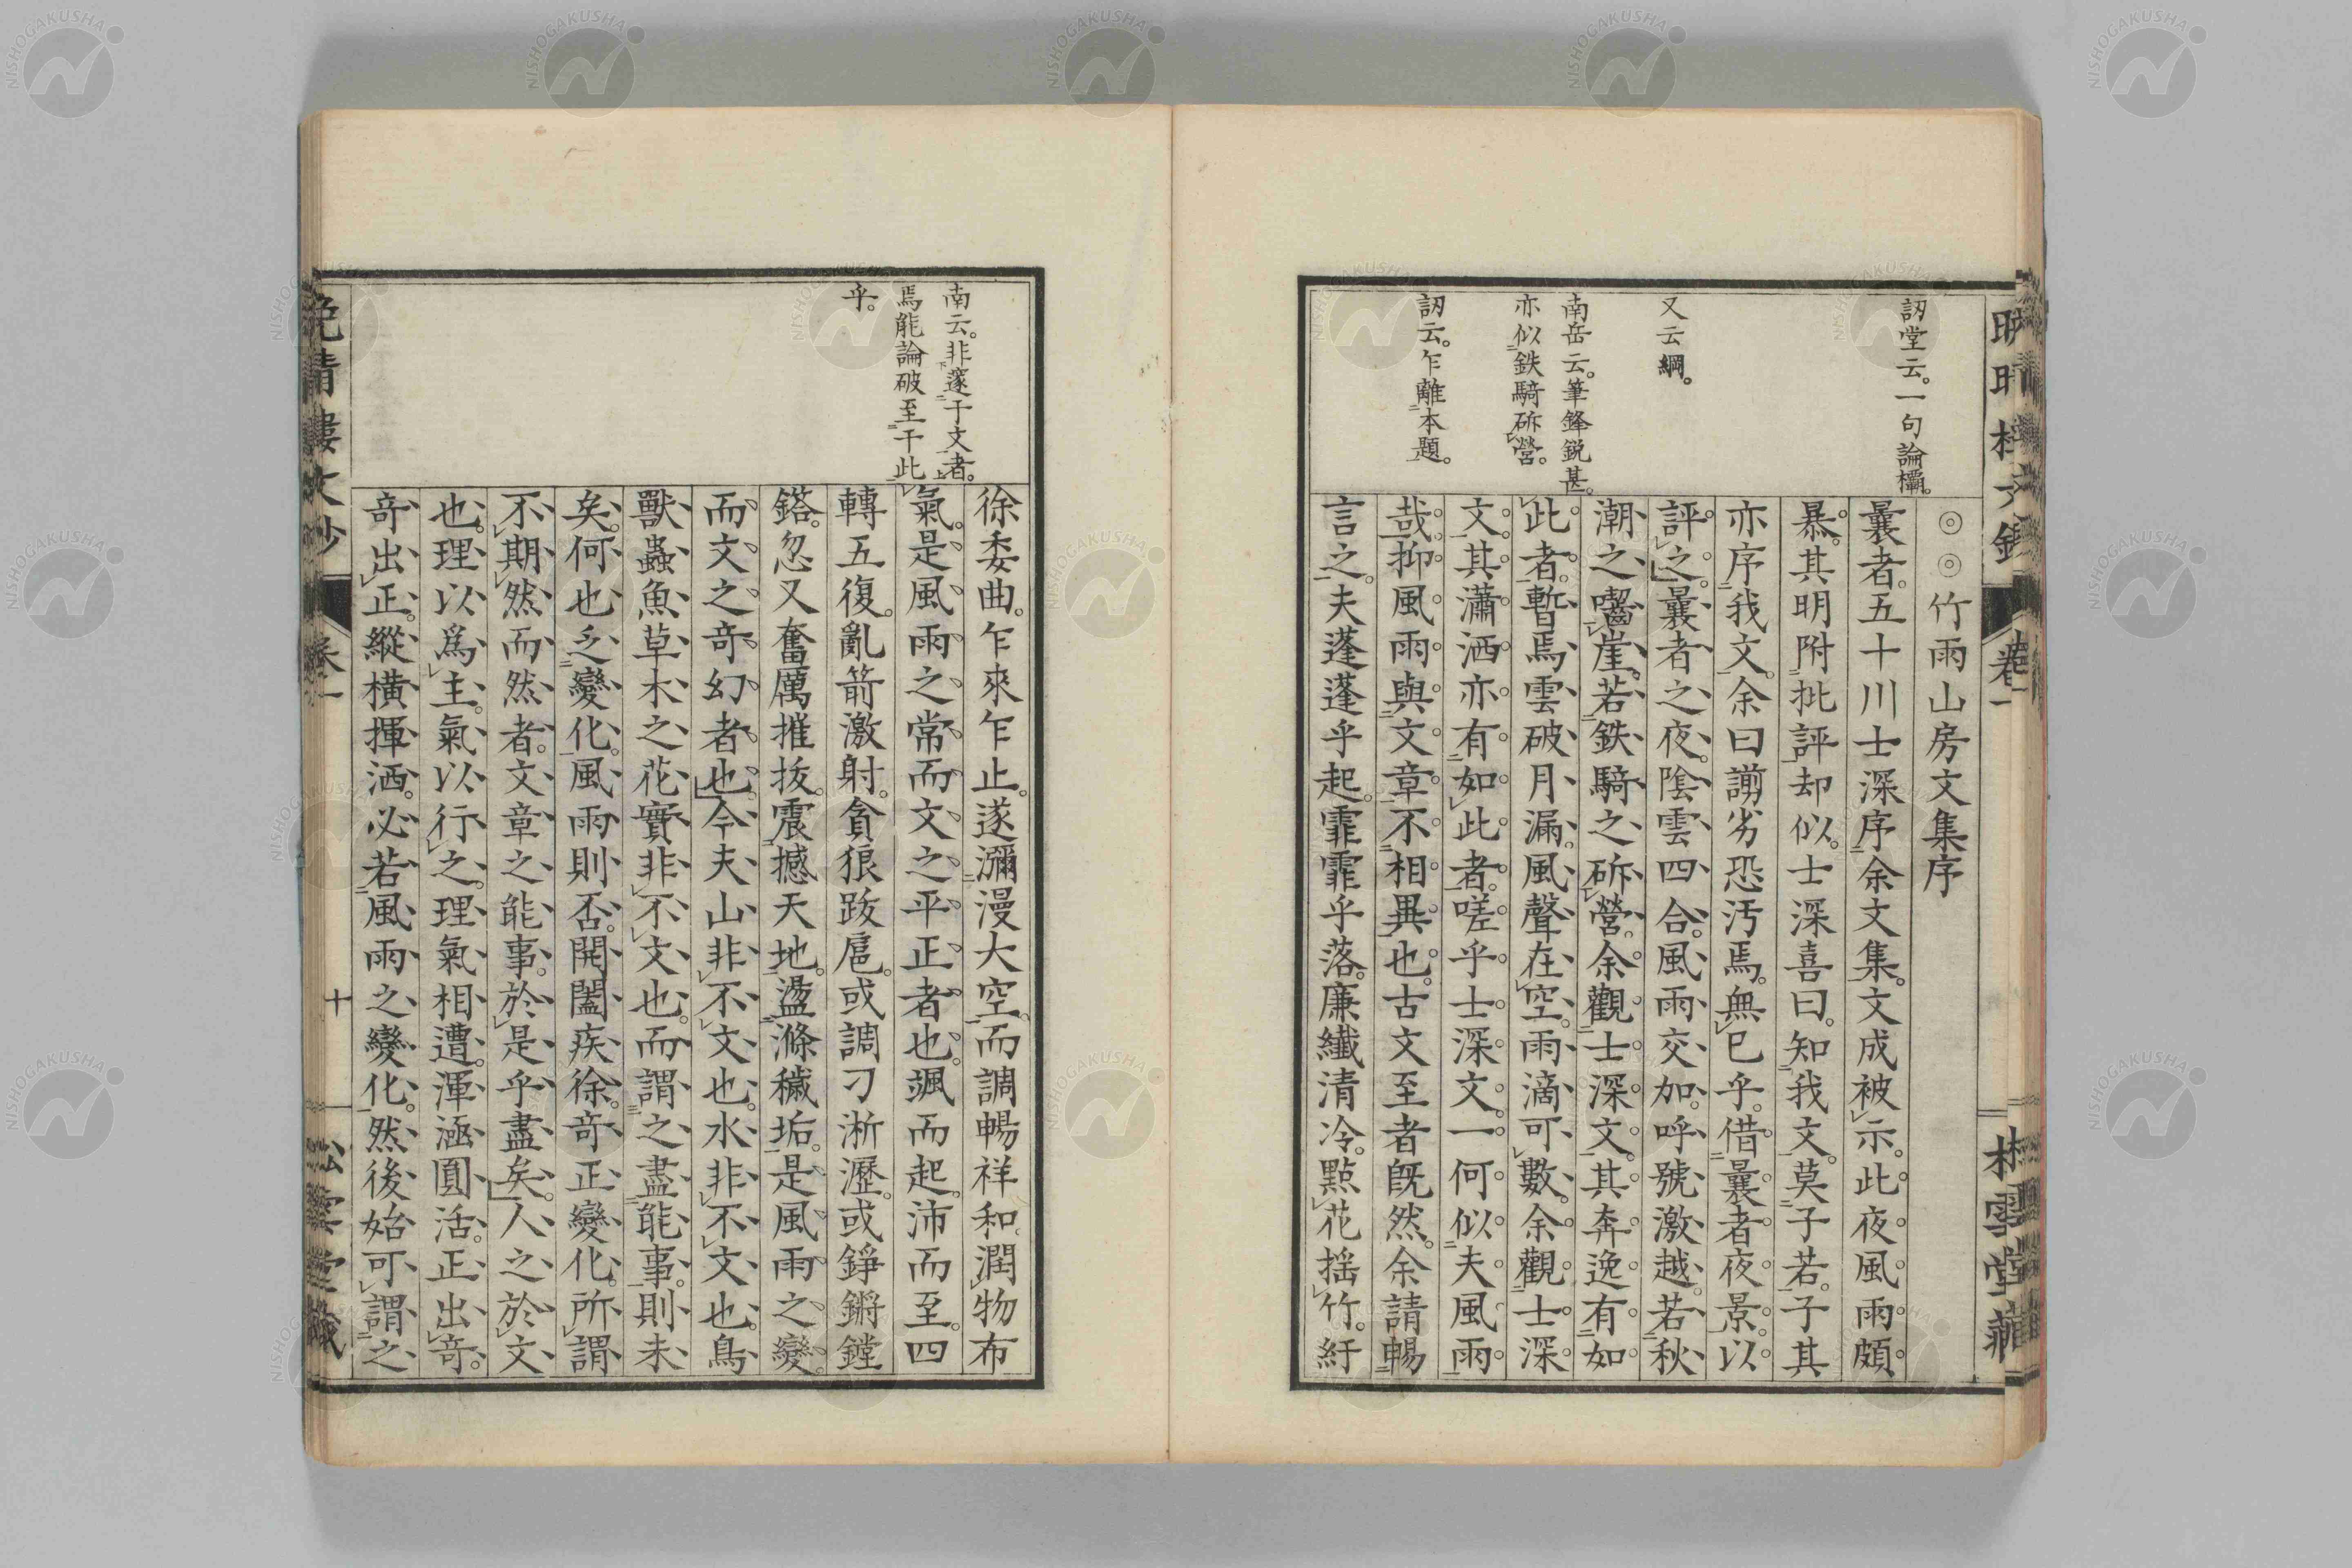 訒堂云。一句論欛。
又云綱。
南岳云。筆鋒鋭甚。
亦似鉄騎斫營。
訒云。乍離本題。
◎◎竹雨山房文集序
曩者。五十川士深序余文集。文成被示。此夜風雨頗
暴。其明附批評却似。士深喜曰。知我文。莫子若。子其
亦序我文。余曰謭劣恐汚焉。無已乎。借曩者夜景。以
評之。曩者之夜。陰雲四合。風雨交加。呼號激越。若秋
潮之囓崖。若鉄騎之斫營。余觀士深文。其奔逸有如
此者。暫焉雲破月漏。風聲在空。雨滴可數。余觀士深
文。其瀟洒亦有如此者。嗟乎士深文。一何似夫風雨
哉。抑風雨與文章。不相異也。古文至者既然。余請暢
言之。夫蓬蓬乎起。霏霏乎落。廉纖清冷。點花揺竹。紆
卷一
南云。非邃于文者。
焉能論破至于此
乎。
徐委曲。乍來乍止。遂瀰漫大空。而調暢祥和。潤物布
氣。是風雨之常。而文之平正者也。颯而起。沛而至。四
轉五復。亂箭激射。貪狼跋扈。或調刁淅瀝。或錚鏘鏜
鎝。忽又奮厲摧抜。震撼天地。盪滌穢垢。是風雨之變。
而文之奇幻者也。今夫山非不文也。水非不文也。鳥
獸蟲魚草木之花實非不文也。而謂之盡能事。則未
矣。何也。乏變化。風雨則否。開闔疾徐。奇正變化。所謂
不期然而然者。文章之能事。於是乎盡矣。人之於文
也。理以爲主。氣以行之。理氣相遭。渾涵圓活。正出奇。
奇出正。縱横揮洒。必若風雨之變化。然後始可謂之
晩晴樓文鈔
卷一
十
松雲堂藏